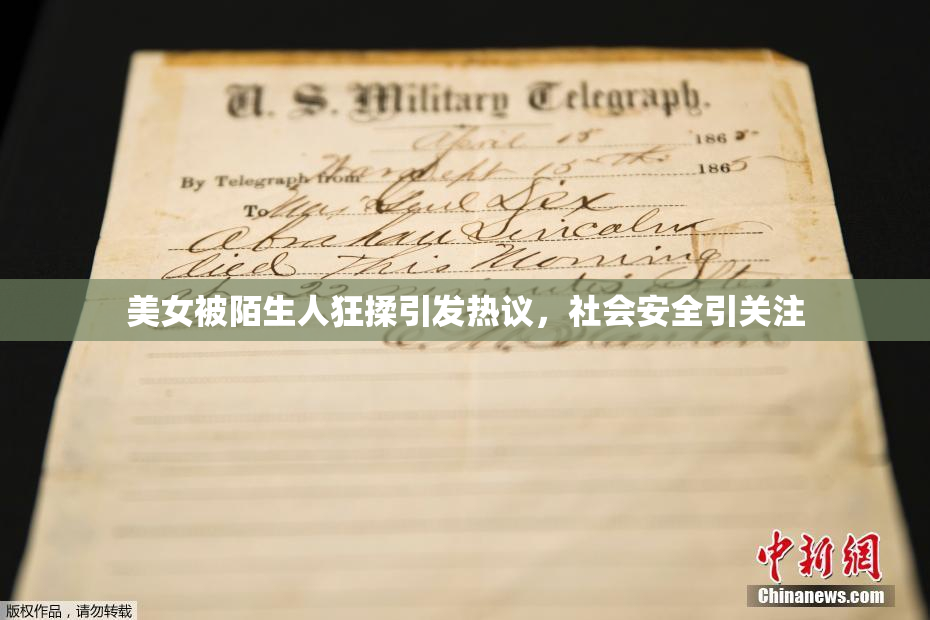 U. S. Military Telegraph.
April 15 1865
By Telegraph from War Dept 15th 1865
To Maj Genl Dix
Abraham Lincoln
died This Morning
at 22 minutes after
美女被陌生人狂揉引发热议，社会安全引关注
E. M. Stanton
中新网
Chinanews.com
版权作品，请勿转载